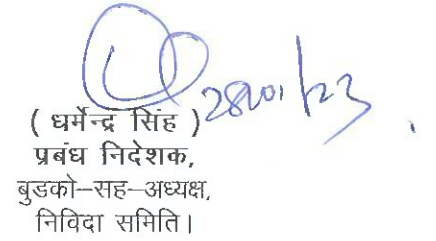 28/01/23
( धर्मेन्द्र सिंह )
प्रबंध निदेशक,
बुडको–सह–अध्यक्ष,
निविदा समिति।